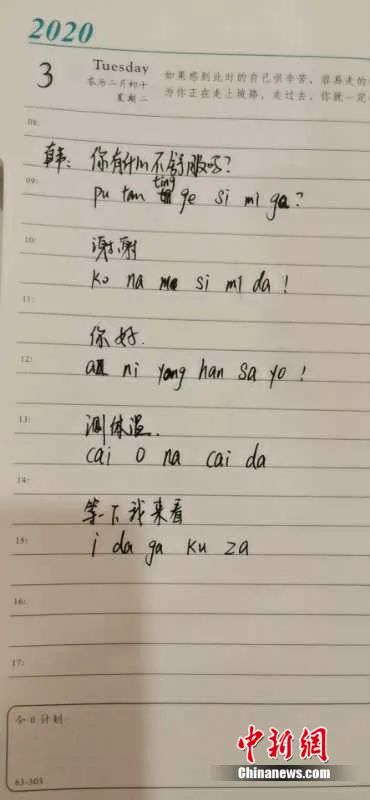 2020
3
Tuesday
农历二月初十
星期二
如果感到此时的自己很辛苦，容易走的
为你正在走上坡路，走过去，你就一定
08:
韩：你有什么不舒服吗？
09:
ting
pu tan ge si mi ga?
10:
谢谢
ko na me si mi da !
11:
你好.
12:
an ni yong han sa yo !
13:
测体温.
cai o na cai da
14:
等一下我来看
15:
i da ga ku za
16:
17:
今日计划
63-303
中新网
Chinanews.com